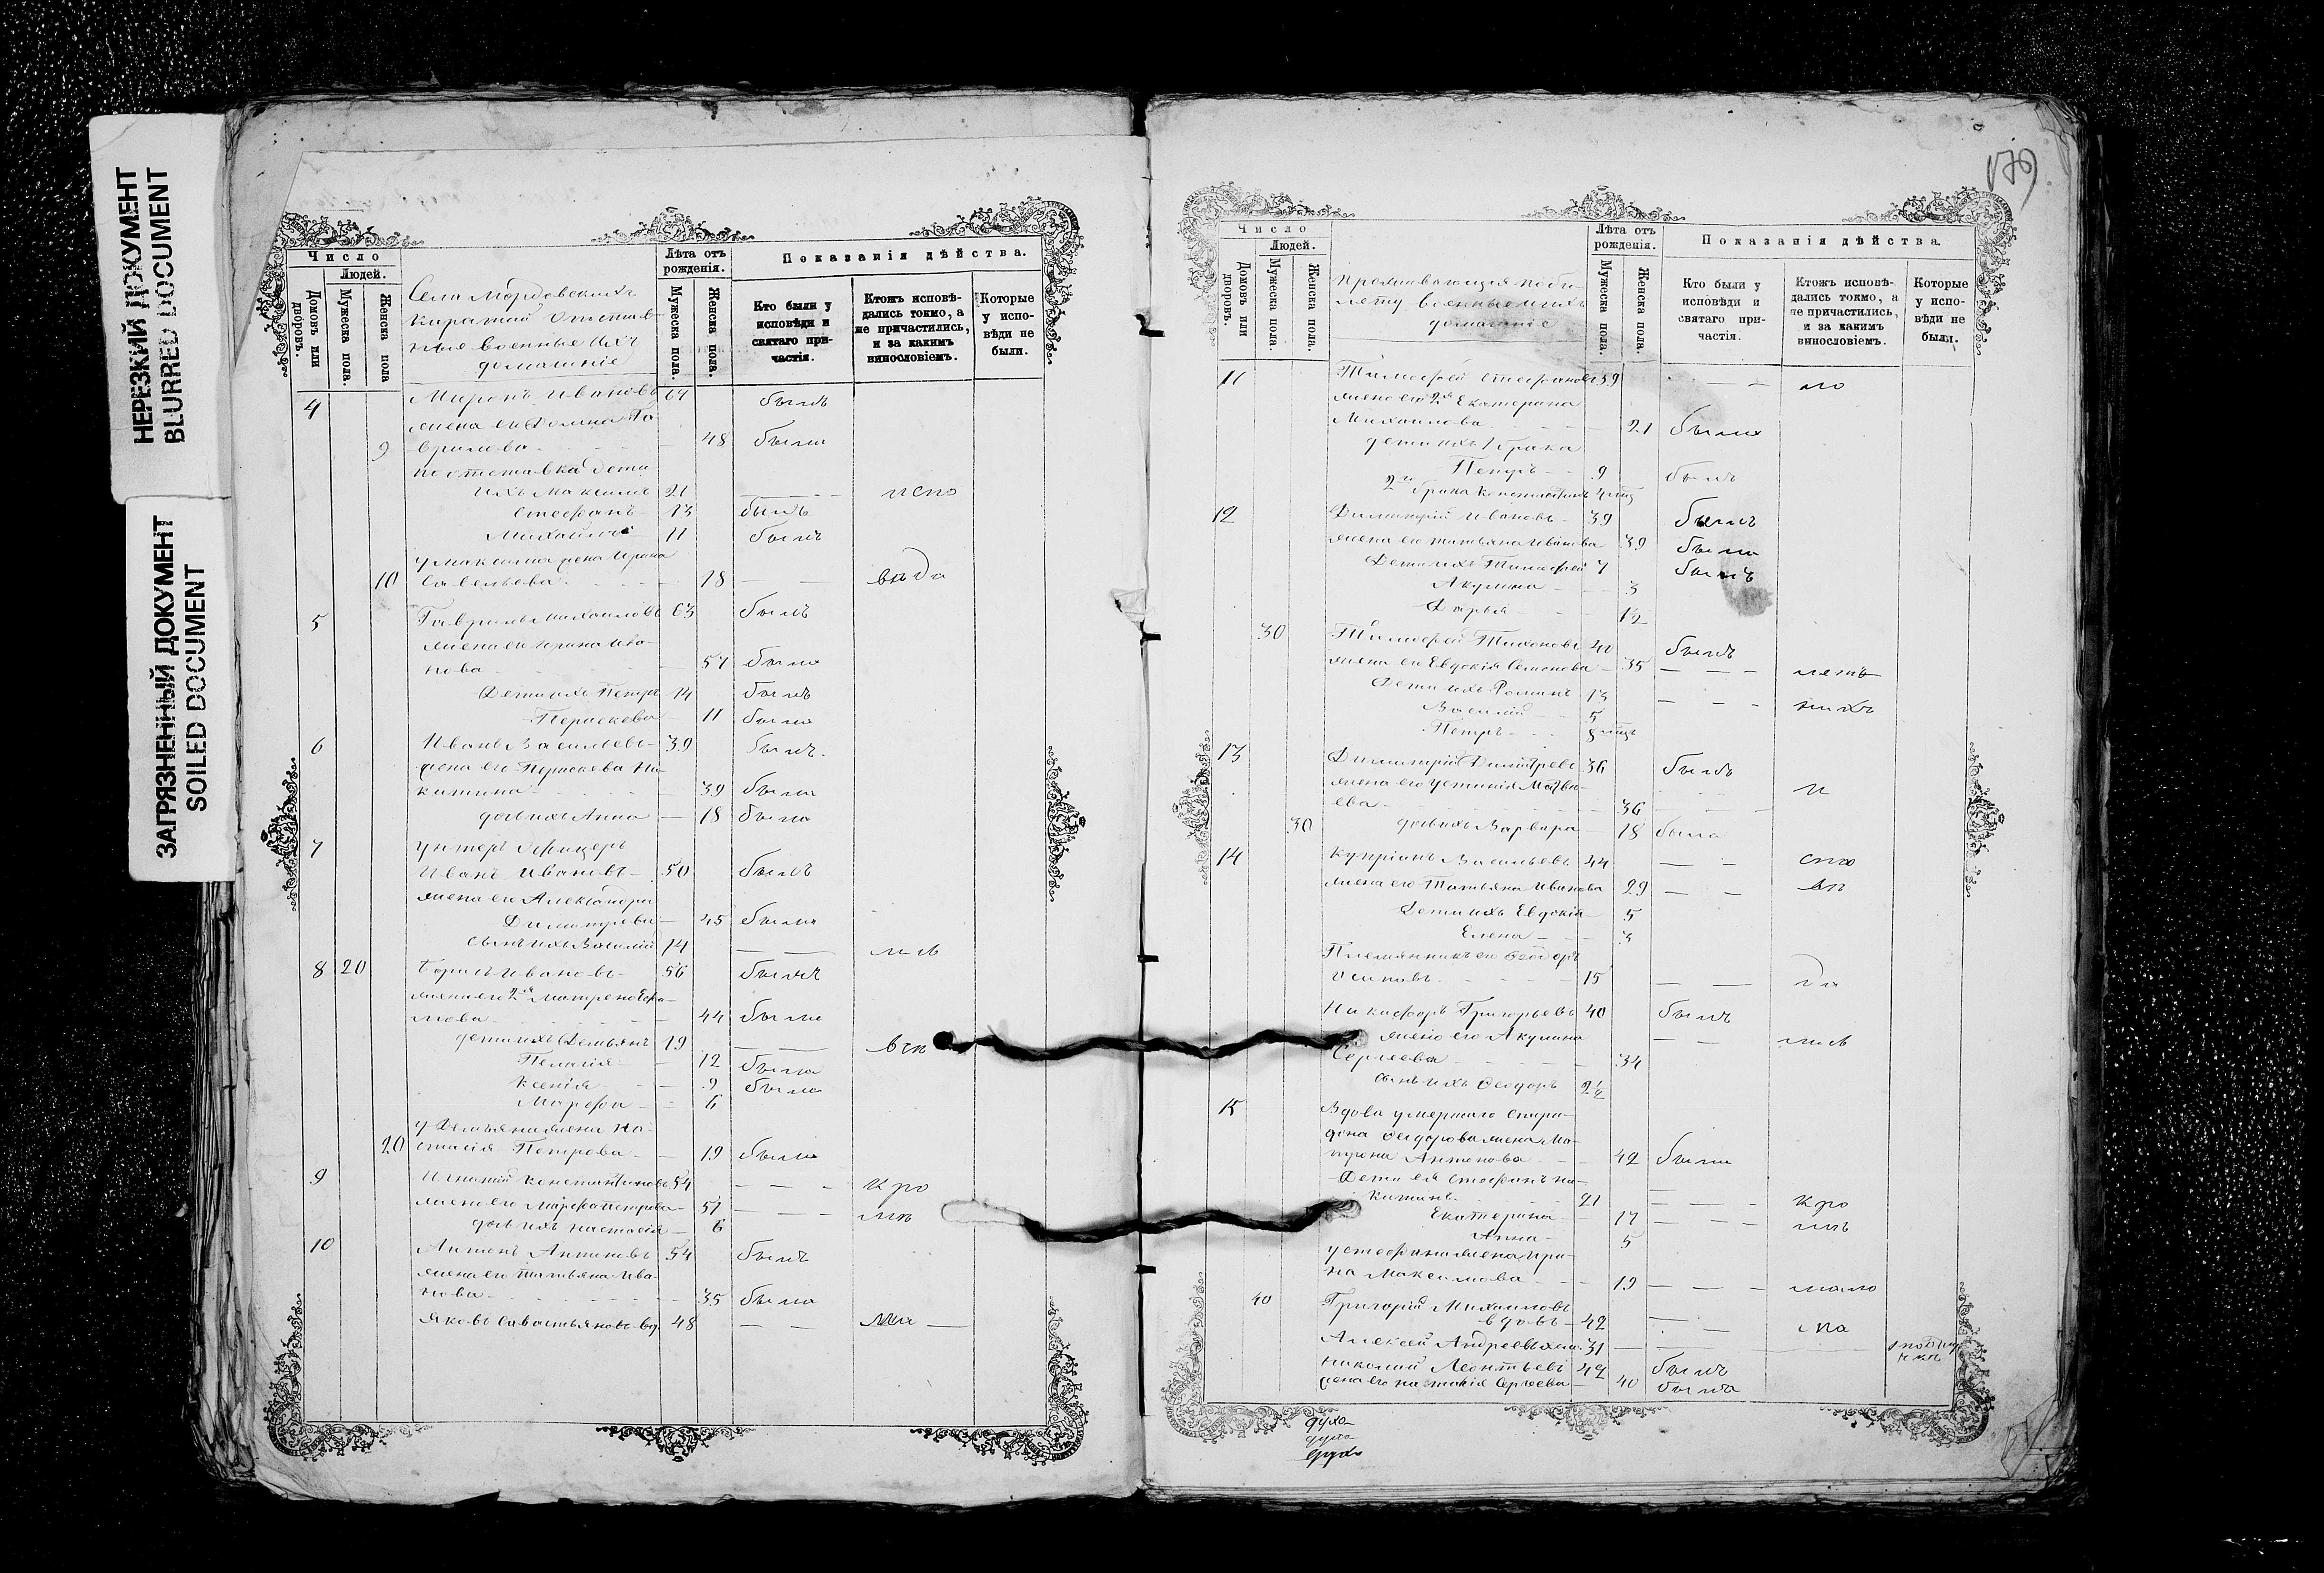 НЕРЕЗКИЙ ДОКУМЕНТ
BLURRED DOCUMENT
ЗАГРЯЗНЕННЫЙ ДОКУМЕНТ
SOILED DOCUMENT
Число
Людей.
Домовъ или дворовъ.
Мужеска пола.
Женска пола
Села Мордовскихъ
Каратай Отстав
ные военные ихъ
домашніе
Лѣта отъ рожденія.
Мужеска пола.
Женска пола.
Показанія дѣйства.
Кто были у исповѣди и святаго причастія.
Ктожъ исповѣдались токмо, а не причастились, и за какимъ винословіемъ.
Которые у исповѣди не были.
4 Миронъ Ивановъ 67 былъ
жена его Га
9 врилова 48 была
дети
ихъ Максимъ 21 испо
Стефанъ 13 былъ
Михаилъ 11 былъ
у Максима жена Ирина
10 Савельева 18 веда
5 Гаврилъ Михаиловъ 63 былъ
жена его Ирина Ива-
нова 57 была
Дети ихъ Петръ 14 былъ
Параскева 11 была
6 Иванъ Васильевъ 39 былъ
жена его Параскева Ни-
китина 39 была
дочь ихъ Анна 18 была
7 Унтеръ Офицеръ
Иванъ Ивановъ 50 былъ
жена его Александра
Димитрева 45 была
сынъ ихъ Василій 14
8 20 Борисъ Ивановъ 56 былъ
жена его 2я Матрена Ефи-
мова 44 была
дети ихъ Демьянъ 19
Пелагія 12 была
Ксенія 9 была
Марфа 6
у Демьяна жена На-
20 стасія Петрова 19 была
9 Игнатій Константиновъ 54 кро
жена его Марфа Петрова 57
дочь ихъ Настасія 6
10 Антонъ Антоновъ 54 былъ
жена его Татьяна Ива-
нова 35 была
Яковъ Савастьяновъ вд. 48
179
Число
Людей.
Домовъ или дворовъ.
Мужеска пола.
Женска пола.
Проживающія по би-
лету военные ихъ
домашніе
Лѣта отъ рожденія.
Мужеска пола.
Женска пола.
Показанія дѣйства.
Кто были у исповѣди и святаго причастія.
Ктожъ исповѣдались токмо, а не причастились, и за какимъ винословіемъ.
Которые у исповѣди не были.
11 Тимофей Стефановъ 39
жена его 2я Екатерина
Михаилова 21 была
дети ихъ 1 брака
Петръ 9 былъ
2го брака Константинъ 4
12 Димитрій Ивановъ 39 былъ
жена его Татьяна Иванова 39 была
Дети ихъ Тимофей 7 былъ
Акулина 3
Дарья 1/2
30 Тимофей Тихоновъ 40 былъ
жена его Евдокія Семенова 35
Дети ихъ Романъ 13
Василій 5
Петръ 8
13 Димитрій Димитревъ 36 былъ
жена его Устинія Матве-
ева 36
30 дочь ихъ Варвара 18 была
14 Купріянъ Васильевъ 44
жена его Татьяна Иванова 29
Дети ихъ Евдокія 5
Елена 3
Племянникъ его Феодоръ
Осиповъ 15 да
Никифоръ Григорьевъ 40 былъ
жена его Акулина
Сергеева 34
сынъ ихъ Феодоръ 2 1/2
15 Вдова умершаго Спири-
дона Феодорова жена Ма-
трена Антонова 42 была
Дети ея Стефанъ Ни-
китинъ 21 кро
Екатерина 17
Анна 5
у Стефана жена Ири-
на Максимова 19
40 Григорій Михаиловъ
вдовъ 42
Алексей Андреевъ 31
Николай Леонтьевъ 42 былъ
жена его Настасія Сергеева 40 была